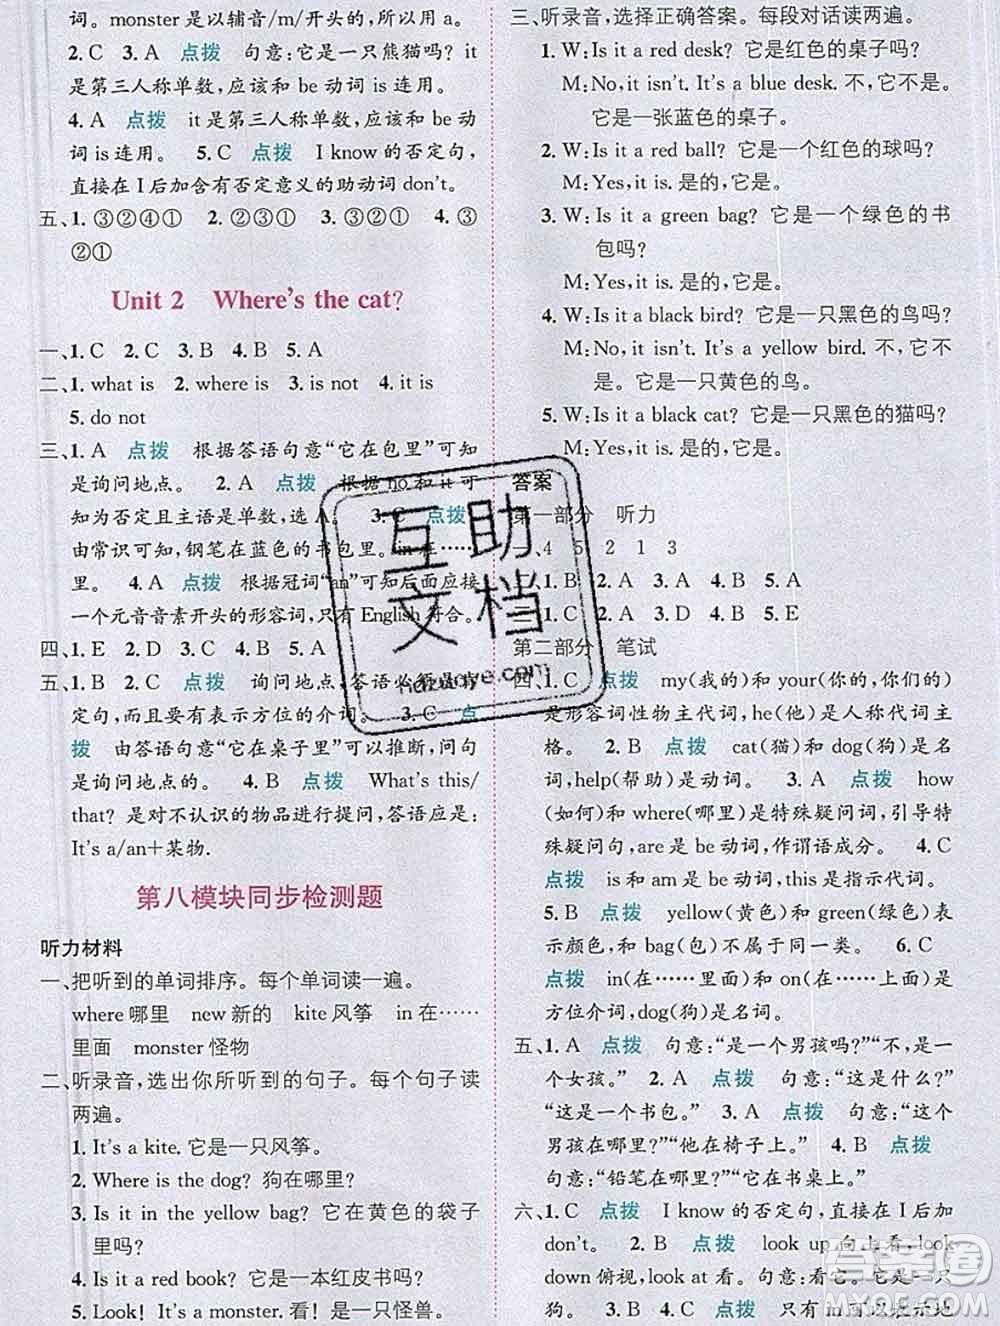 词。monster 是以辅音/m/开头的,所以用 a。
2. C 3. A 点拨 句意:它是一只熊猫吗?it
是第三人称单数,应该和 be 动词 is 连用。
4. A 点拨 it 是第三人称单数,应该和 be 动
词 is 连用。 5. C 点拨 I know 的否定句,
直接在 I 后加含有否定意义的助动词 don't。
五、1. ③②④① 2. ②③① 3. ①③② 4. ③
②①
Unit 2 Where's the cat?
一、1. C 2. C 3. B 4. B 5. A
二、1. what is 2. where is 3. is not 4. it is
5. do not
三、1. A 点拨 根据答语句意“它在包里”可知
是询问地点。 2. A 点拨 根据 no 和 it 可
知为否定且主语是单数,选 A。 3. C 点拨
由常识可知,钢笔在蓝色的书包里。in 在……
里。 4. A 点拨 根据冠词“an”可知后面应接
一个元音音素开头的形容词,只有 English 符合。
四、1. E 2. D 3. C 4. B 5. A
五、1. B 2. C 点拨 询问地点,答语必须是肯
定句,而且要有表示方位的介词。 3. C 点
拨 由答语句意“它在桌子里”可以推断,问句
是询问地点的。 4. B 点拨 What's this/
that? 是对不认识的物品进行提问,答语应是:
It's a/an+某物.
第八模块同步检测题
听力材料
一、把听到的单词排序。每个单词读一遍。
where 哪里 new 新的 kite 风筝 in 在……
里面 monster 怪物
二、听录音,选出你所听到的句子。每个句子读
两遍。
1. It's a kite. 它是一只风筝。
2. Where is the dog? 狗在哪里?
3. Is it in the yellow bag? 它在黄色的袋子
里吗?
4. Is it a red book? 它是一本红皮书吗?
5. Look! It's a monster. 看!是一只怪兽。
三、听录音,选择正确答案。每段对话读两遍。
1. W: Is it a red desk? 它是红色的桌子吗?
M: No, it isn't. It's a blue desk. 不,它不是。
它是一张蓝色的桌子。
2. W: Is it a red ball? 它是一个红色的球吗?
M: Yes, it is. 是的,它是。
3. W: Is it a green bag? 它是一个绿色的书
包吗?
M: Yes, it is. 是的,它是。
4. W: Is it a black bird? 它是一只黑色的鸟吗?
M: No, it isn't. It's a yellow bird. 不,它不
是。它是一只黄色的鸟。
5. W: Is it a black cat? 它是一只黑色的猫吗?
M: Yes, it is. 是的,它是。
答案
第一部分 听力
一、4 5 2 1 3
二、1. B 2. A 3. C 4. B 5. A
三、1. C 2. A 3. D 4. B 5. E
第二部分 笔试
四、1. C 点拨 my(我的)和 your(你的,你们的)
是形容词性物主代词,he(他)是人称代词主
格。 2. B 点拨 cat(猫)和 dog(狗)是名
词,help(帮助)是动词。 3. A 点拨 how
(如何)和 where(哪里)是特殊疑问词,引导特
殊疑问句,are 是 be 动词,作谓语成分。 4. C
点拨 is 和 am 是 be 动词,this 是指示代词。
5. B 点拨 yellow(黄色)和 green(绿色)表
示颜色,和 bag(包)不属于同一类。 6. C
点拨 in(在……里面)和 on(在……上面)是
方位介词,dog(狗)是名词。
五、1. A 点拨 句意:“是一个男孩吗?”“不,是
一个女孩。” 2. A 点拨 句意:“这是什么?”
“这是一个书包。” 3. A 点拨 句意:“这个
男孩在哪里?”“他在椅子上。” 4. B 点拨
句意:“铅笔在哪里?”“它在书桌上。”
六、1. C 点拨 I know 的否定句,在 I 后加
don't。 2. B 点拨 look up 向上看,look
down 俯视,look at 看。句意:看它。它是一只
狗。 3. A 点拨 4. C 点拨 只有 in 可以表示地
互助
文档
Hdzuoye.com
答案圈
MXQE.COM